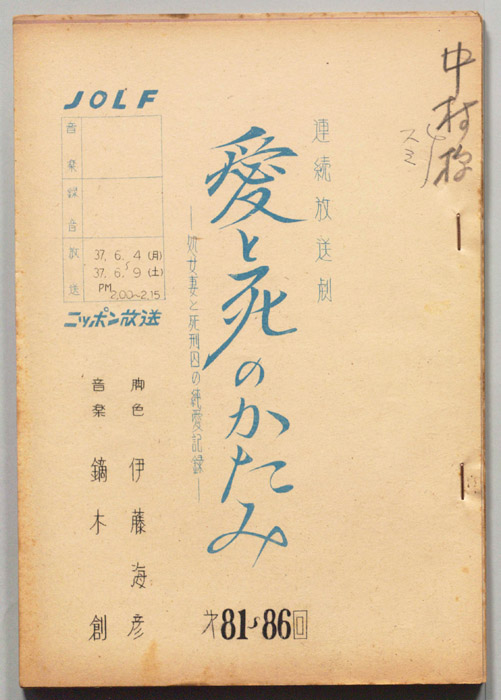 中村様
スミ
連続放送劇
愛と死のかたみ
―処女妻と死刑囚の純愛記録―
オ81〜86回
JOLF
音楽
録音
放送
37. 6. 4 (月)
〜
37. 6. 9 (土)
PM 2.00〜2.15
ニッポン放送
脚色 伊藤海彦
音楽 鏑木創